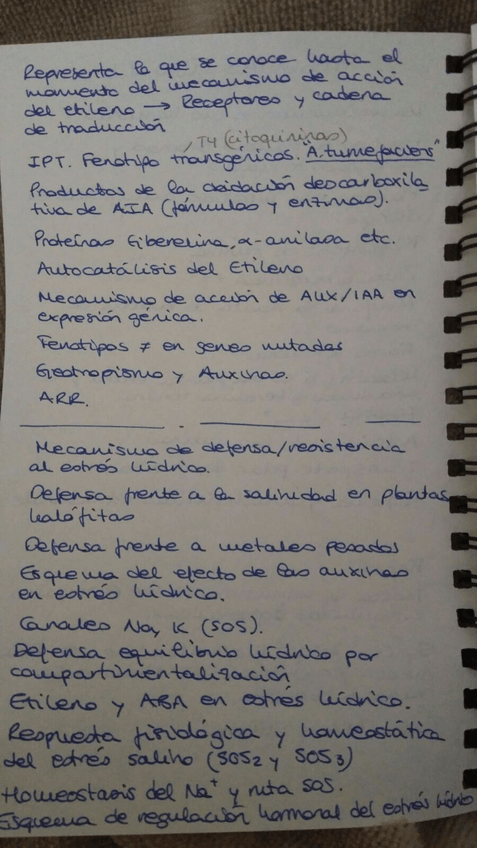 Representa lo que se conoce hasta el
momento del mecanismo de acción
del etileno → Receptores y cadena
de traducción
, T4 (citoquininas)
IPT. Fenotipo transgénicos. "A. tumefaciens"
Productos de la oxidación descarboxila
tiva de AIA (fórmulas y enzimas).
Proteínas Giberelina, α-amilasa etc.
Autocatálisis del Etileno
Mecanismo de acción de AUX/IAA en
expresión génica.
Fenotipos ≠ en genes mutados
Geotropismo y Auxinas.
ARR.
Mecanismo de defensa/resistencia
al estrés hídrico.
Defensa frente a la salinidad en plantas
halófitas
Defensa frente a metales pesados
Esquema del efecto de las auxinas
en estrés hídrico.
Canales Na, K (SOS).
Defensa equilibrio hídrico por
compartimentalización
Etileno y ABA en estrés hídrico.
Respuesta fisiológica y homeostática
del estrés salino (SOS2 y SOS3)
Homeostasis del Na⁺ y ruta SOS.
Esquema de regulación hormonal del estrés hídrico